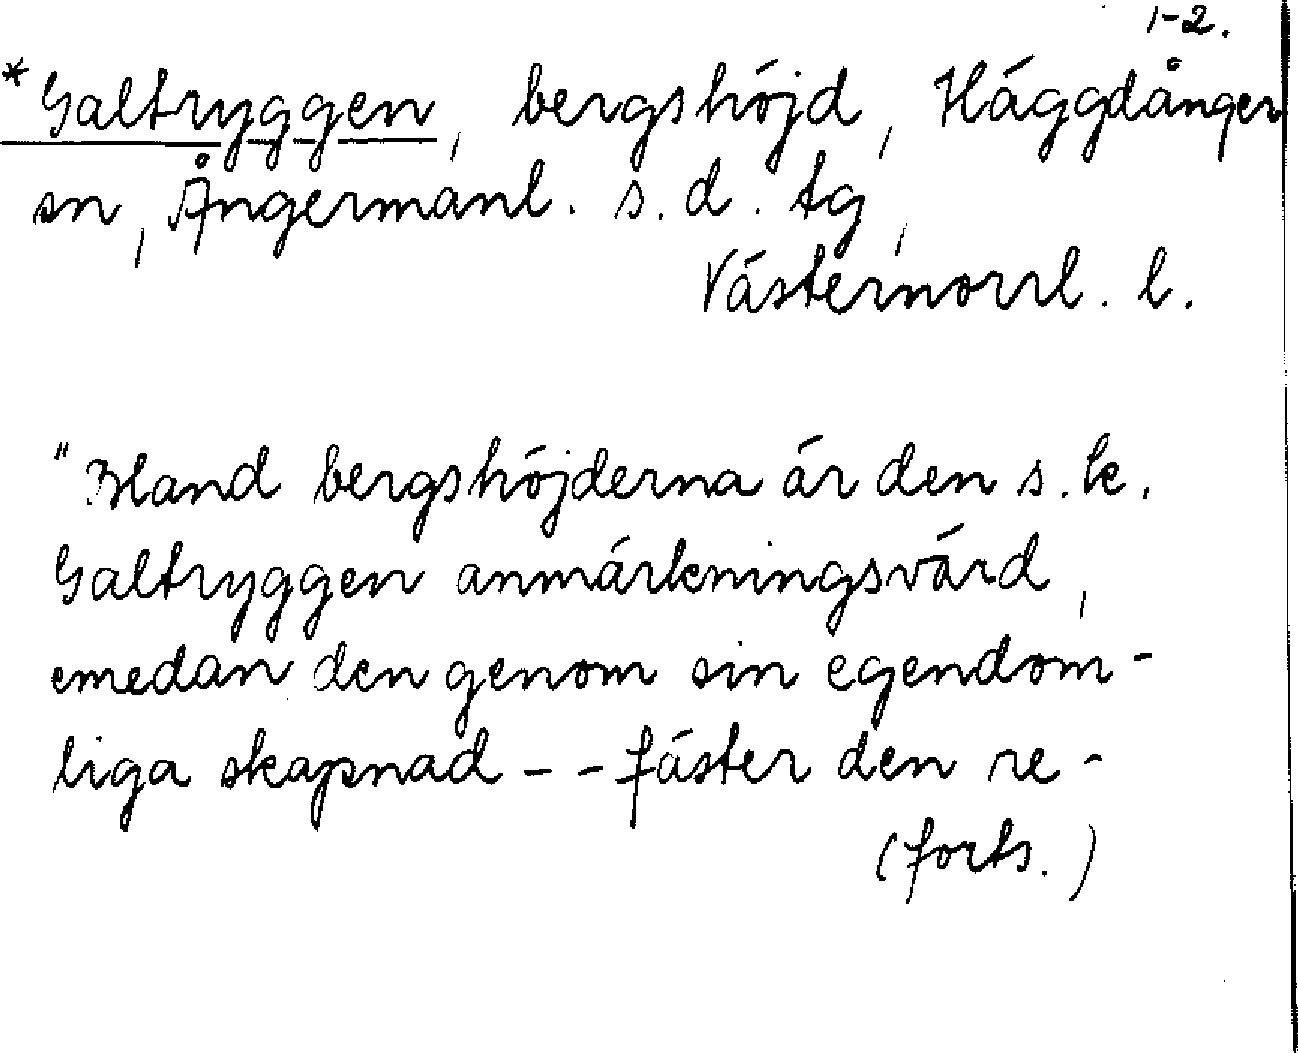 1-2.
*Galtryggen, bergshöjd, Häggdånger
sn, Ångermanl. s.d. tg,
Västernorrl. l.
"Bland bergshöjderna är den s.k.
Galtryggen anmärkningsvärd,
emedan den genom sin egendom-
liga skapnad - - fäster den re-
(forts.)